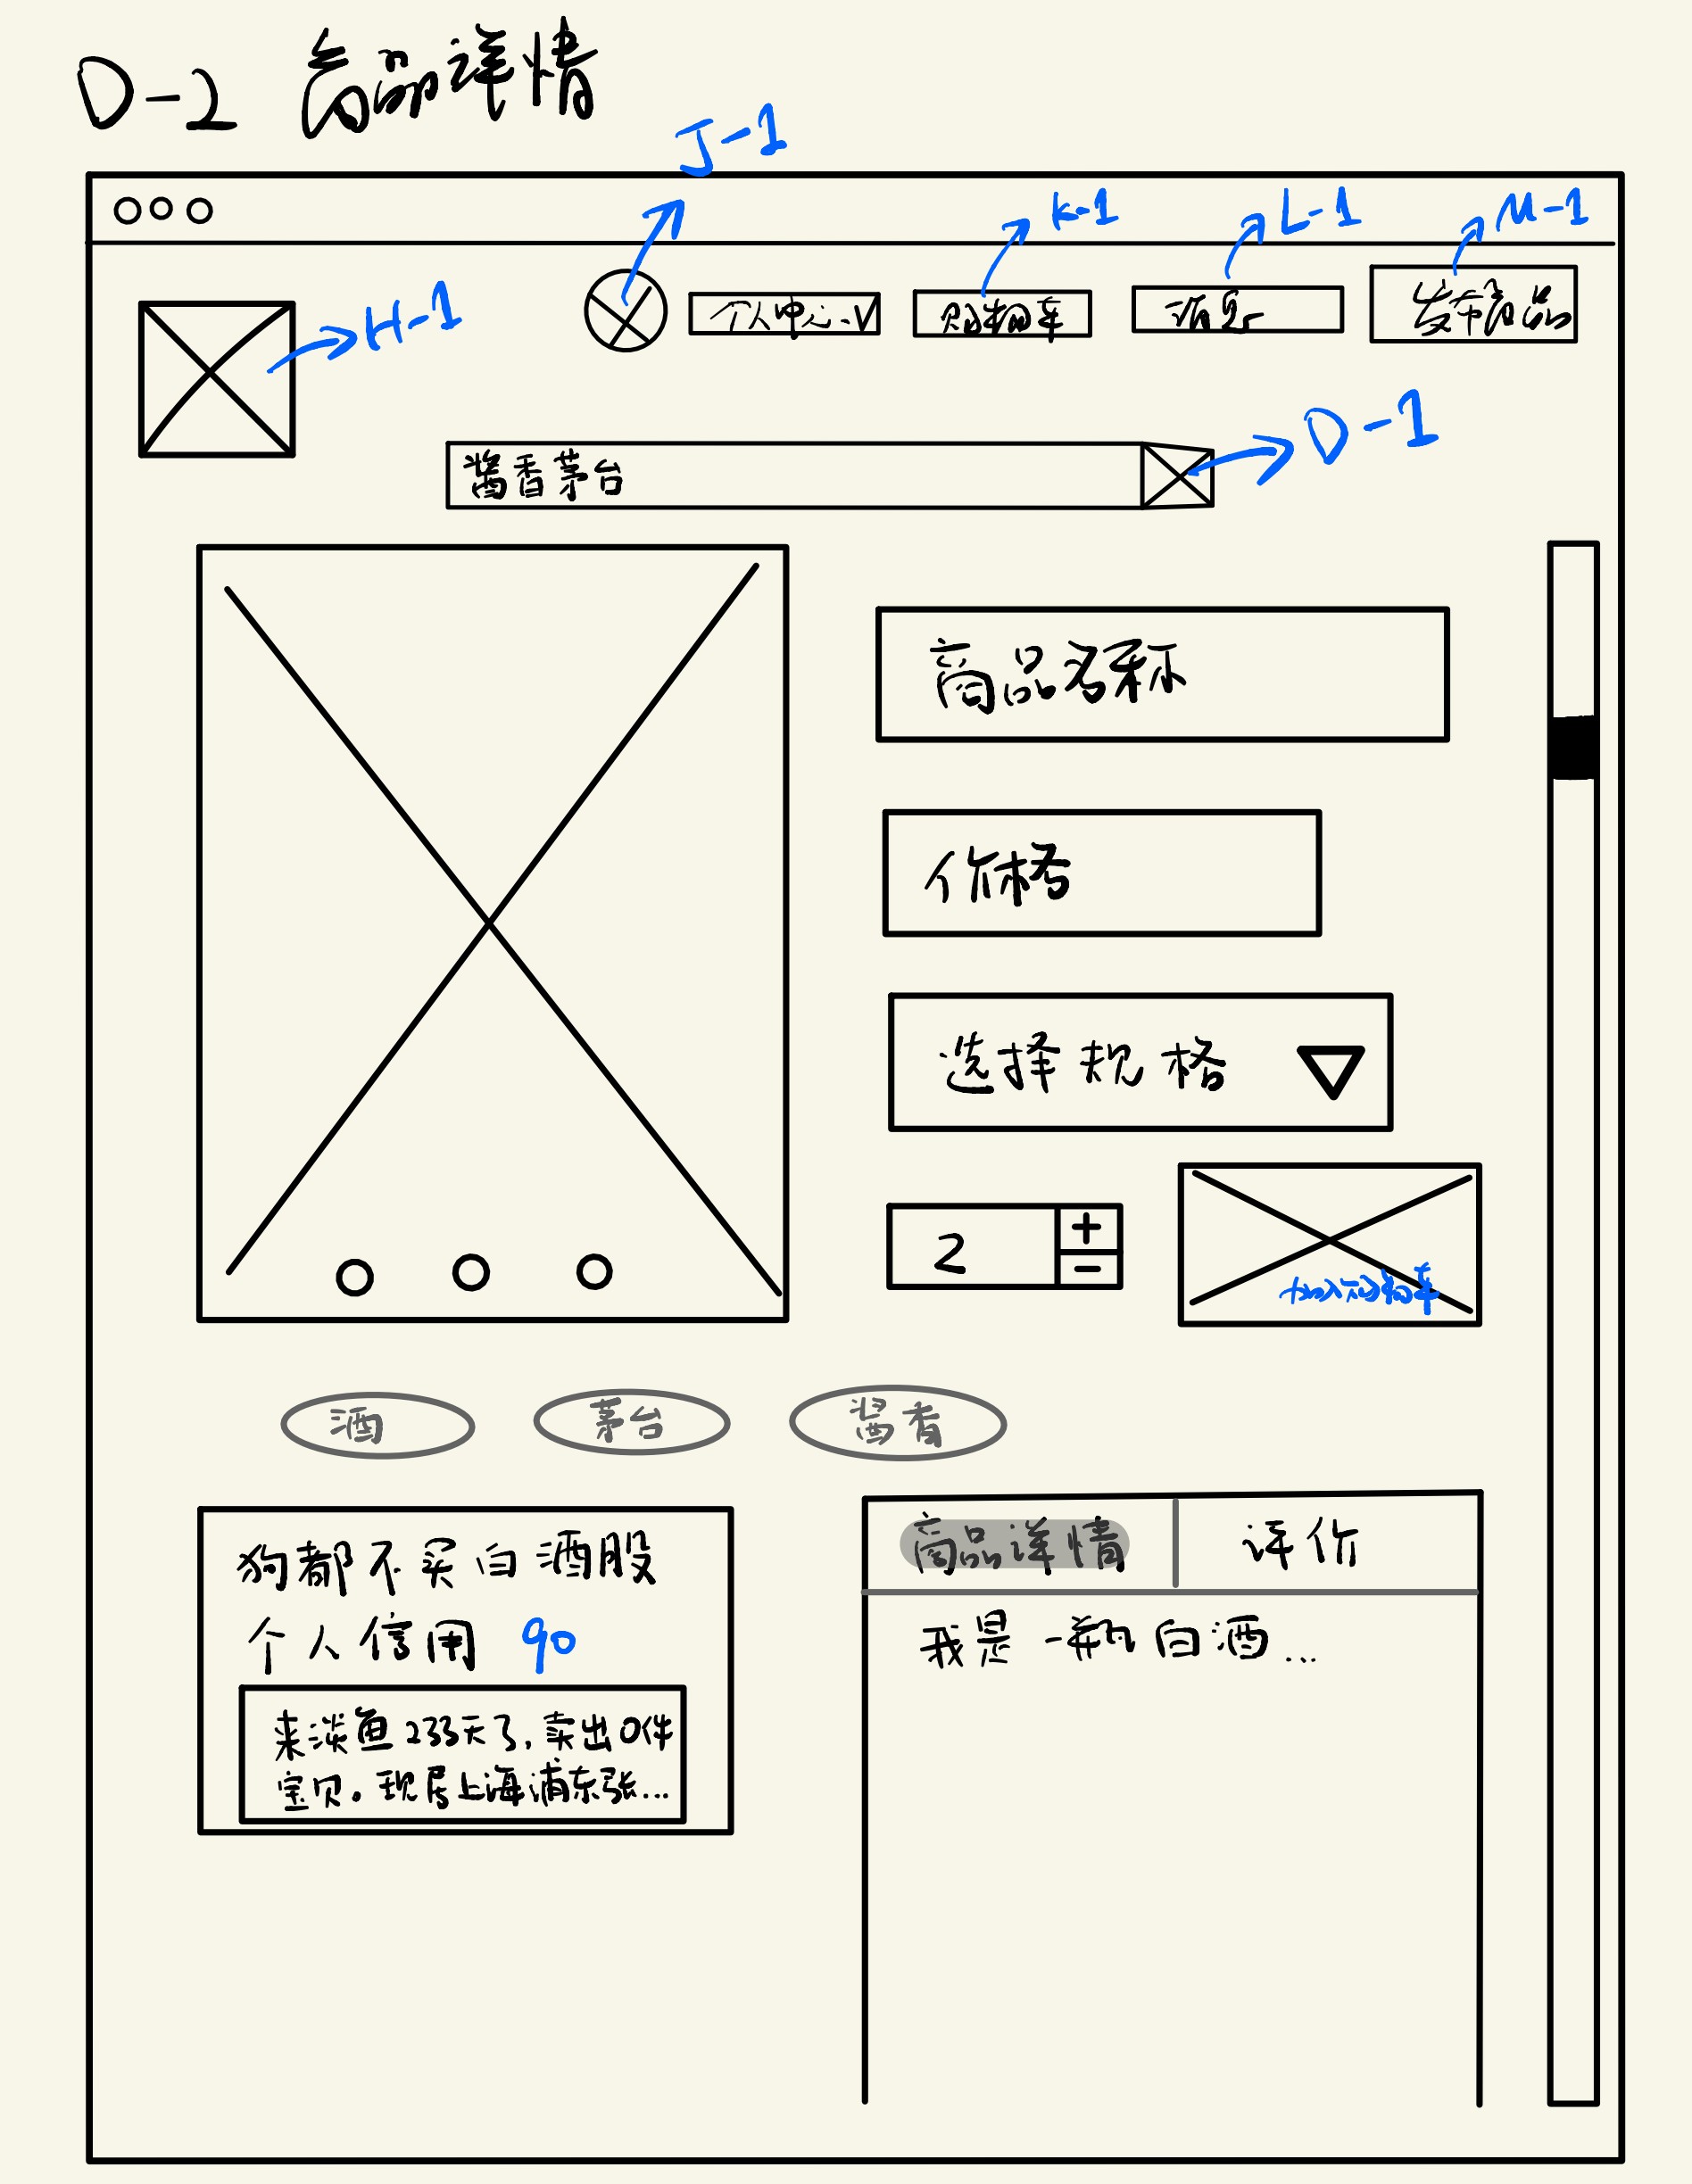 D-2 商品详情
J-1
K-1
L-1
M-1
H-1
个人中心 V
购物车
消息
发布商品
D-1
酱香茅台
商品名称
价格
选择规格
2
+
-
加入购物车
酒
茅台
酱香
狗都不买白酒股
个人信用 90
来淡鱼233天了,卖出0件
宝贝。现居上海浦东张...
商品详情
评价
我是一瓶白酒...